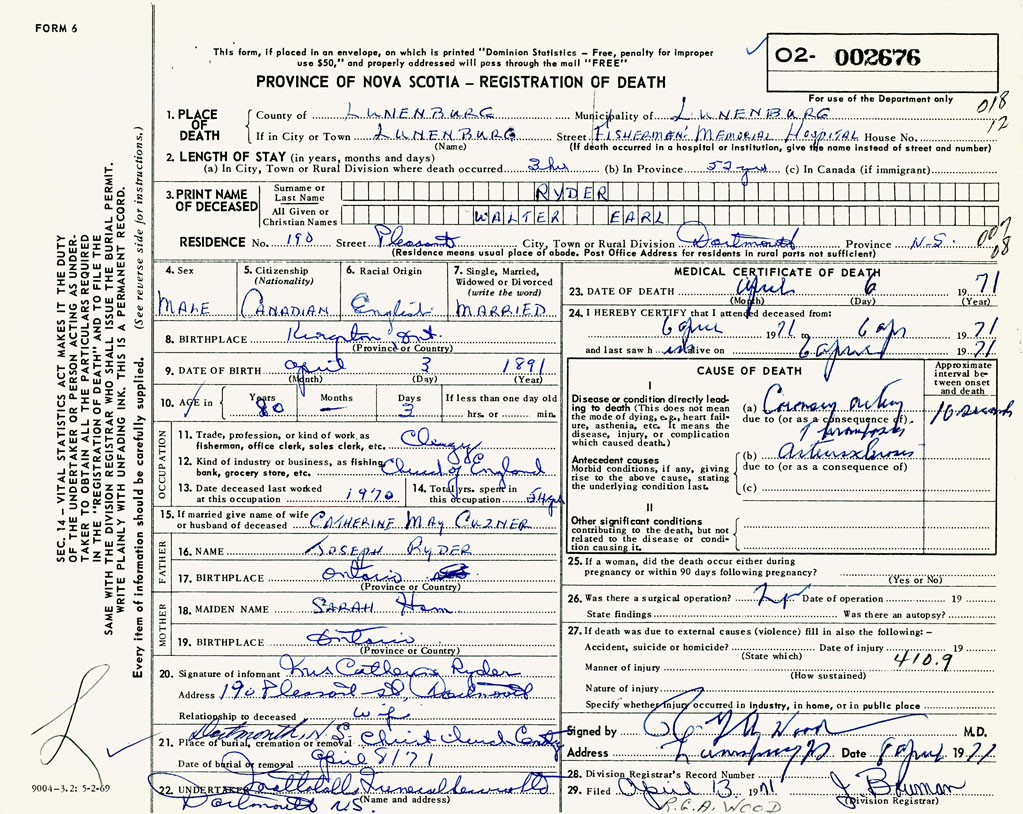 FORM 6
This form, if placed in an envelope, on which is printed "Dominion Statistics – Free, penalty for improper
use $50," and properly addressed will pass through the mail "FREE"
PROVINCE OF NOVA SCOTIA – REGISTRATION OF DEATH
02- 002676
For use of the Department only
018
12
1. PLACE OF DEATH
County of LUNENBURG Municipality of LUNENBURG
If in City or Town LUNENBURG Street FISHERMEN'S MEMORIAL HOSPITAL House No.
(Name) (If death occurred in a hospital or institution, give the name instead of street and number)
2. LENGTH OF STAY (in years, months and days)
(a) In City, Town or Rural Division where death occurred 3 hrs (b) In Province 52 yrs (c) In Canada (if immigrant)
3. PRINT NAME OF DECEASED
Surname or Last Name RYDER
All Given or Christian Names WALTER EARL
RESIDENCE No. 190 Street Pleasant City, Town or Rural Division Dartmouth Province N.S.
(Residence means usual place of abode. Post Office Address for residents in rural parts not sufficient)
08
4. Sex MALE
5. Citizenship (Nationality) CANADIAN
6. Racial Origin English
7. Single, Married, Widowed or Divorced (write the word) MARRIED
8. BIRTHPLACE Kingston Ont.
(Province or Country)
9. DATE OF BIRTH April 3 1891
(Month) (Day) (Year)
10. AGE in Years 80 Months — Days 3 If less than one day old
hrs. or min.
OCCUPATION
11. Trade, profession, or kind of work as fisherman, office clerk, sales clerk, etc. Clergy
12. Kind of industry or business, as fishing, bank, grocery store, etc. Church of England
13. Date deceased last worked at this occupation 1970
14. Total yrs. spent in this occupation 54 yrs
15. If married give name of wife or husband of deceased CATHERINE MAY CUZNER
FATHER
16. NAME JOSEPH RYDER
17. BIRTHPLACE Ontario
(Province or Country)
MOTHER
18. MAIDEN NAME SARAH Ham
19. BIRTHPLACE Ontario
(Province or Country)
20. Signature of informant Mrs Catherine Ryder
Address 190 Pleasant St, Dartmouth
Relationship to deceased wife
Dartmouth, N.S.
21. Place of burial, cremation or removal Christ Church Cemetery
Date of burial or removal April 8/71
22. UNDERTAKER
Dartmouth N.S. (Name and address)
MEDICAL CERTIFICATE OF DEATH
23. DATE OF DEATH April 6 1971
(Month) (Day) (Year)
24. I HEREBY CERTIFY that I attended deceased from:
6 April 1971 to 6 Apr 1971
and last saw h im alive on 6 April 1971
CAUSE OF DEATH
Approximate interval between onset and death
I
Disease or condition directly leading to death (This does not mean the mode of dying, e.g., heart failure, asthenia, etc. It means the disease, injury, or complication which caused death.)
(a) Coronary artery 10 seconds
due to (or as a consequence of)
Thrombosis
Antecedent causes
Morbid conditions, if any, giving rise to the above cause, stating the underlying condition last.
(b) Arteriosclerosis
due to (or as a consequence of)
(c)
II
Other significant conditions
contributing to the death, but not related to the disease or condition causing it.
25. If a woman, did the death occur either during pregnancy or within 90 days following pregnancy?
(Yes or No)
26. Was there a surgical operation? No Date of operation 19
State findings Was there an autopsy?
27. If death was due to external causes (violence) fill in also the following: –
Accident, suicide or homicide? Date of injury 19
(State which) 410.9
Manner of injury
(How sustained)
Nature of injury
Specify whether injury occurred in industry, in home, or in public place
Signed by Wood M.D.
Address Lunenburg NS Date 8 April 1971
28. Division Registrar's Record Number
29. Filed April 13 1971
(Division Registrar)
R.G.A. WOOD
SEC. 14 – VITAL STATISTICS ACT MAKES IT THE DUTY
OF THE UNDERTAKER OR PERSON ACTING AS UNDER-
TAKER TO OBTAIN ALL THE PARTICULARS REQUIRED
IN THE "REGISTRATION OF DEATH" AND TO FILE THE
SAME WITH THE DIVISION REGISTRAR WHO SHALL ISSUE THE BURIAL PERMIT.
WRITE PLAINLY WITH UNFADING INK. THIS IS A PERMANENT RECORD.
Every item of information should be carefully supplied. (See reverse side for instructions.)
9004-3.2: 5-2-69